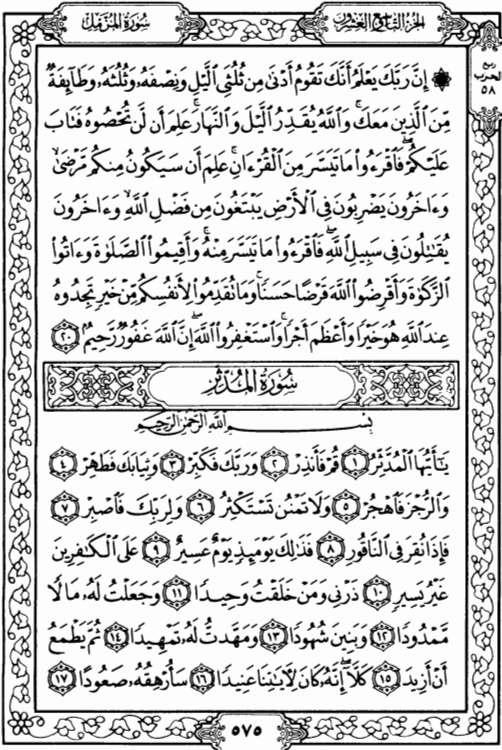 سُورَةُ المُزَّمِّل
الجُزْءُ التَّاسِعُ وَالعِشْرُونَ
ربع
الحزب
٥٨
۞ إِنَّ رَبَّكَ يَعْلَمُ أَنَّكَ تَقُومُ أَدْنَىٰ مِن ثُلُثَيِ ٱلَّيْلِ وَنِصْفَهُۥ وَثُلُثَهُۥ وَطَآئِفَةٌ
مِّنَ ٱلَّذِينَ مَعَكَۚ وَٱللَّهُ يُقَدِّرُ ٱلَّيْلَ وَٱلنَّهَارَۚ عَلِمَ أَن لَّن تُحْصُوهُ فَتَابَ
عَلَيْكُمْۖ فَٱقْرَءُوا۟ مَا تَيَسَّرَ مِنَ ٱلْقُرْءَانِۚ عَلِمَ أَن سَيَكُونُ مِنكُم مَّرْضَىٰۙ
وَءَاخَرُونَ يَضْرِبُونَ فِى ٱلْأَرْضِ يَبْتَغُونَ مِن فَضْلِ ٱللَّهِۙ وَءَاخَرُونَ
يُقَٰتِلُونَ فِى سَبِيلِ ٱللَّهِۖ فَٱقْرَءُوا۟ مَا تَيَسَّرَ مِنْهُۚ وَأَقِيمُوا۟ ٱلصَّلَوٰةَ وَءَاتُوا۟
ٱلزَّكَوٰةَ وَأَقْرِضُوا۟ ٱللَّهَ قَرْضًا حَسَنًاۚ وَمَا تُقَدِّمُوا۟ لِأَنفُسِكُم مِّنْ خَيْرٍ تَجِدُوهُ
عِندَ ٱللَّهِ هُوَ خَيْرًا وَأَعْظَمَ أَجْرًاۚ وَٱسْتَغْفِرُوا۟ ٱللَّهَۖ إِنَّ ٱللَّهَ غَفُورٌ رَّحِيمٌۢ ٢٠
سُورَةُ المُدَّثِّرِ
بِسْمِ ٱللَّهِ ٱلرَّحْمَٰنِ ٱلرَّحِيمِ
يَٰٓأَيُّهَا ٱلْمُدَّثِّرُ ١ قُمْ فَأَنذِرْ ٢ وَرَبَّكَ فَكَبِّرْ ٣ وَثِيَابَكَ فَطَهِّرْ ٤
وَٱلرُّجْزَ فَٱهْجُرْ ٥ وَلَا تَمْنُن تَسْتَكْثِرُ ٦ وَلِرَبِّكَ فَٱصْبِرْ ٧
فَإِذَا نُقِرَ فِى ٱلنَّاقُورِ ٨ فَذَٰلِكَ يَوْمَئِذٍ يَوْمٌ عَسِيرٌ ٩ عَلَى ٱلْكَٰفِرِينَ
غَيْرُ يَسِيرٍ ١٠ ذَرْنِى وَمَنْ خَلَقْتُ وَحِيدًا ١١ وَجَعَلْتُ لَهُۥ مَالًا
مَّمْدُودًا ١٢ وَبَنِينَ شُهُودًا ١٣ وَمَهَّدتُّ لَهُۥ تَمْهِيدًا ١٤ ثُمَّ يَطْمَعُ
أَنْ أَزِيدَ ١٥ كَلَّآۖ إِنَّهُۥ كَانَ لِءَايَٰتِنَا عَنِيدًا ١٦ سَأُرْهِقُهُۥ صَعُودًا ١٧
٥٧٥